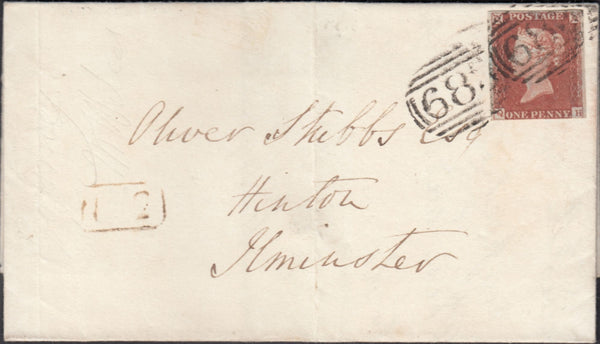 POSTAGE
ONE PENNY
68
Oliver Stubbs Esq
Hinton
Ilminster
2